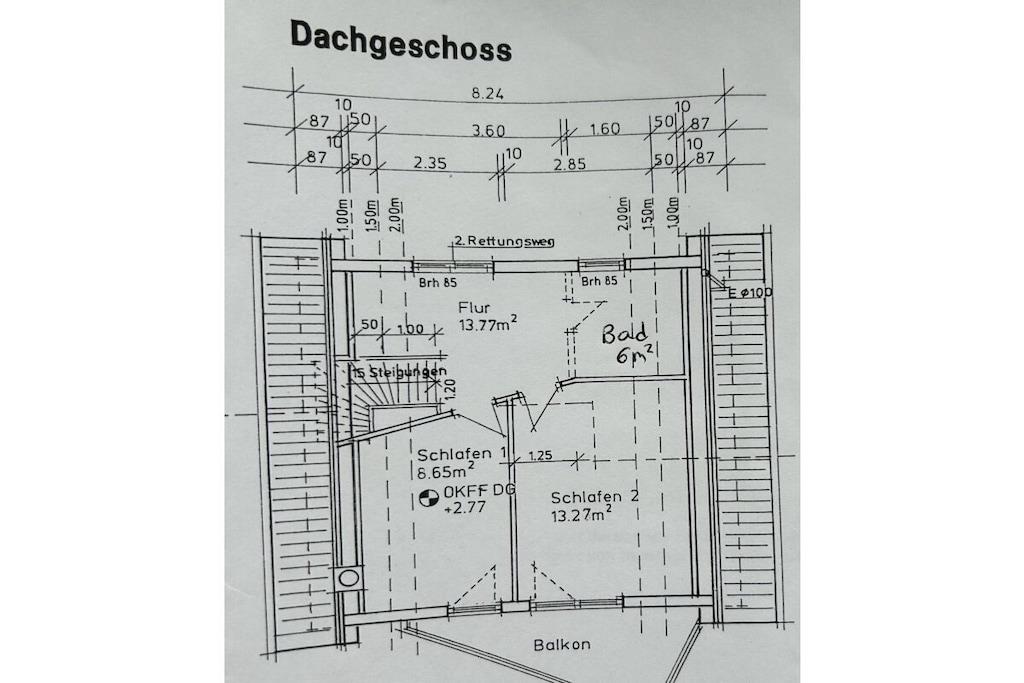 Dachgeschoss
8.24
10 10
87 50 3.60 1.60 50 87
10 10 10
87 50 2.35 2.85 50 87
1.00m 1.50m 2.00m 2.00m 1.50m 1.00m
2. Rettungsweg
Brh 85 Brh 85
E ø100
Flur
13.77m²
Bad
6m²
50 1.00
15 Steigungen
1.20
Schlafen 1
8.65m²
1.25
OKFF DG
+2.77
Schlafen 2
13.27m²
Balkon